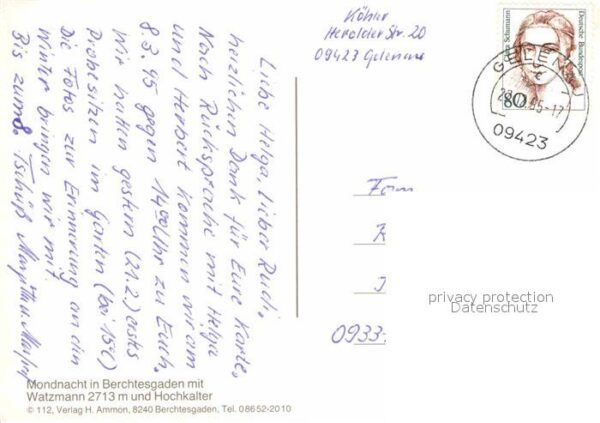 Köhler
Herolder Str. 20
09423 Gelenau
Clara Schumann
Deutsche Bundespost
80
GELENAU
95-17
09423
Liebe Helga, lieber Rudi,
herzlichen Dank für Eure Karte,
Nach Rücksprache mit Helga
und Herbert kommen wir am
8.3.95 gegen 14⁰⁰ Uhr zu Euch.
Wir hatten gestern (21.2.) erstes
Probesitzen im Garten (bei 15°C)
Die Fotos zur Erinnerung an den
Winter bringen wir mit.
Bis zum 8. Tschüß
Fam
privacy protection
Datenschutz
0933
Mondnacht in Berchtesgaden mit
Watzmann 2713 m und Hochkalter
© 112, Verlag H. Ammon, 8240 Berchtesgaden, Tel. 08652-2010